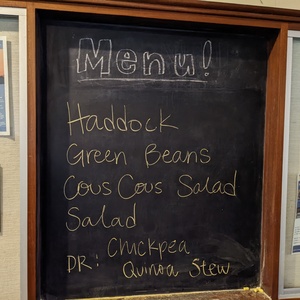 Menu!
Haddock
Green Beans
Cous Cous Salad
Salad
DR: Chickpea
Quinoa Stew